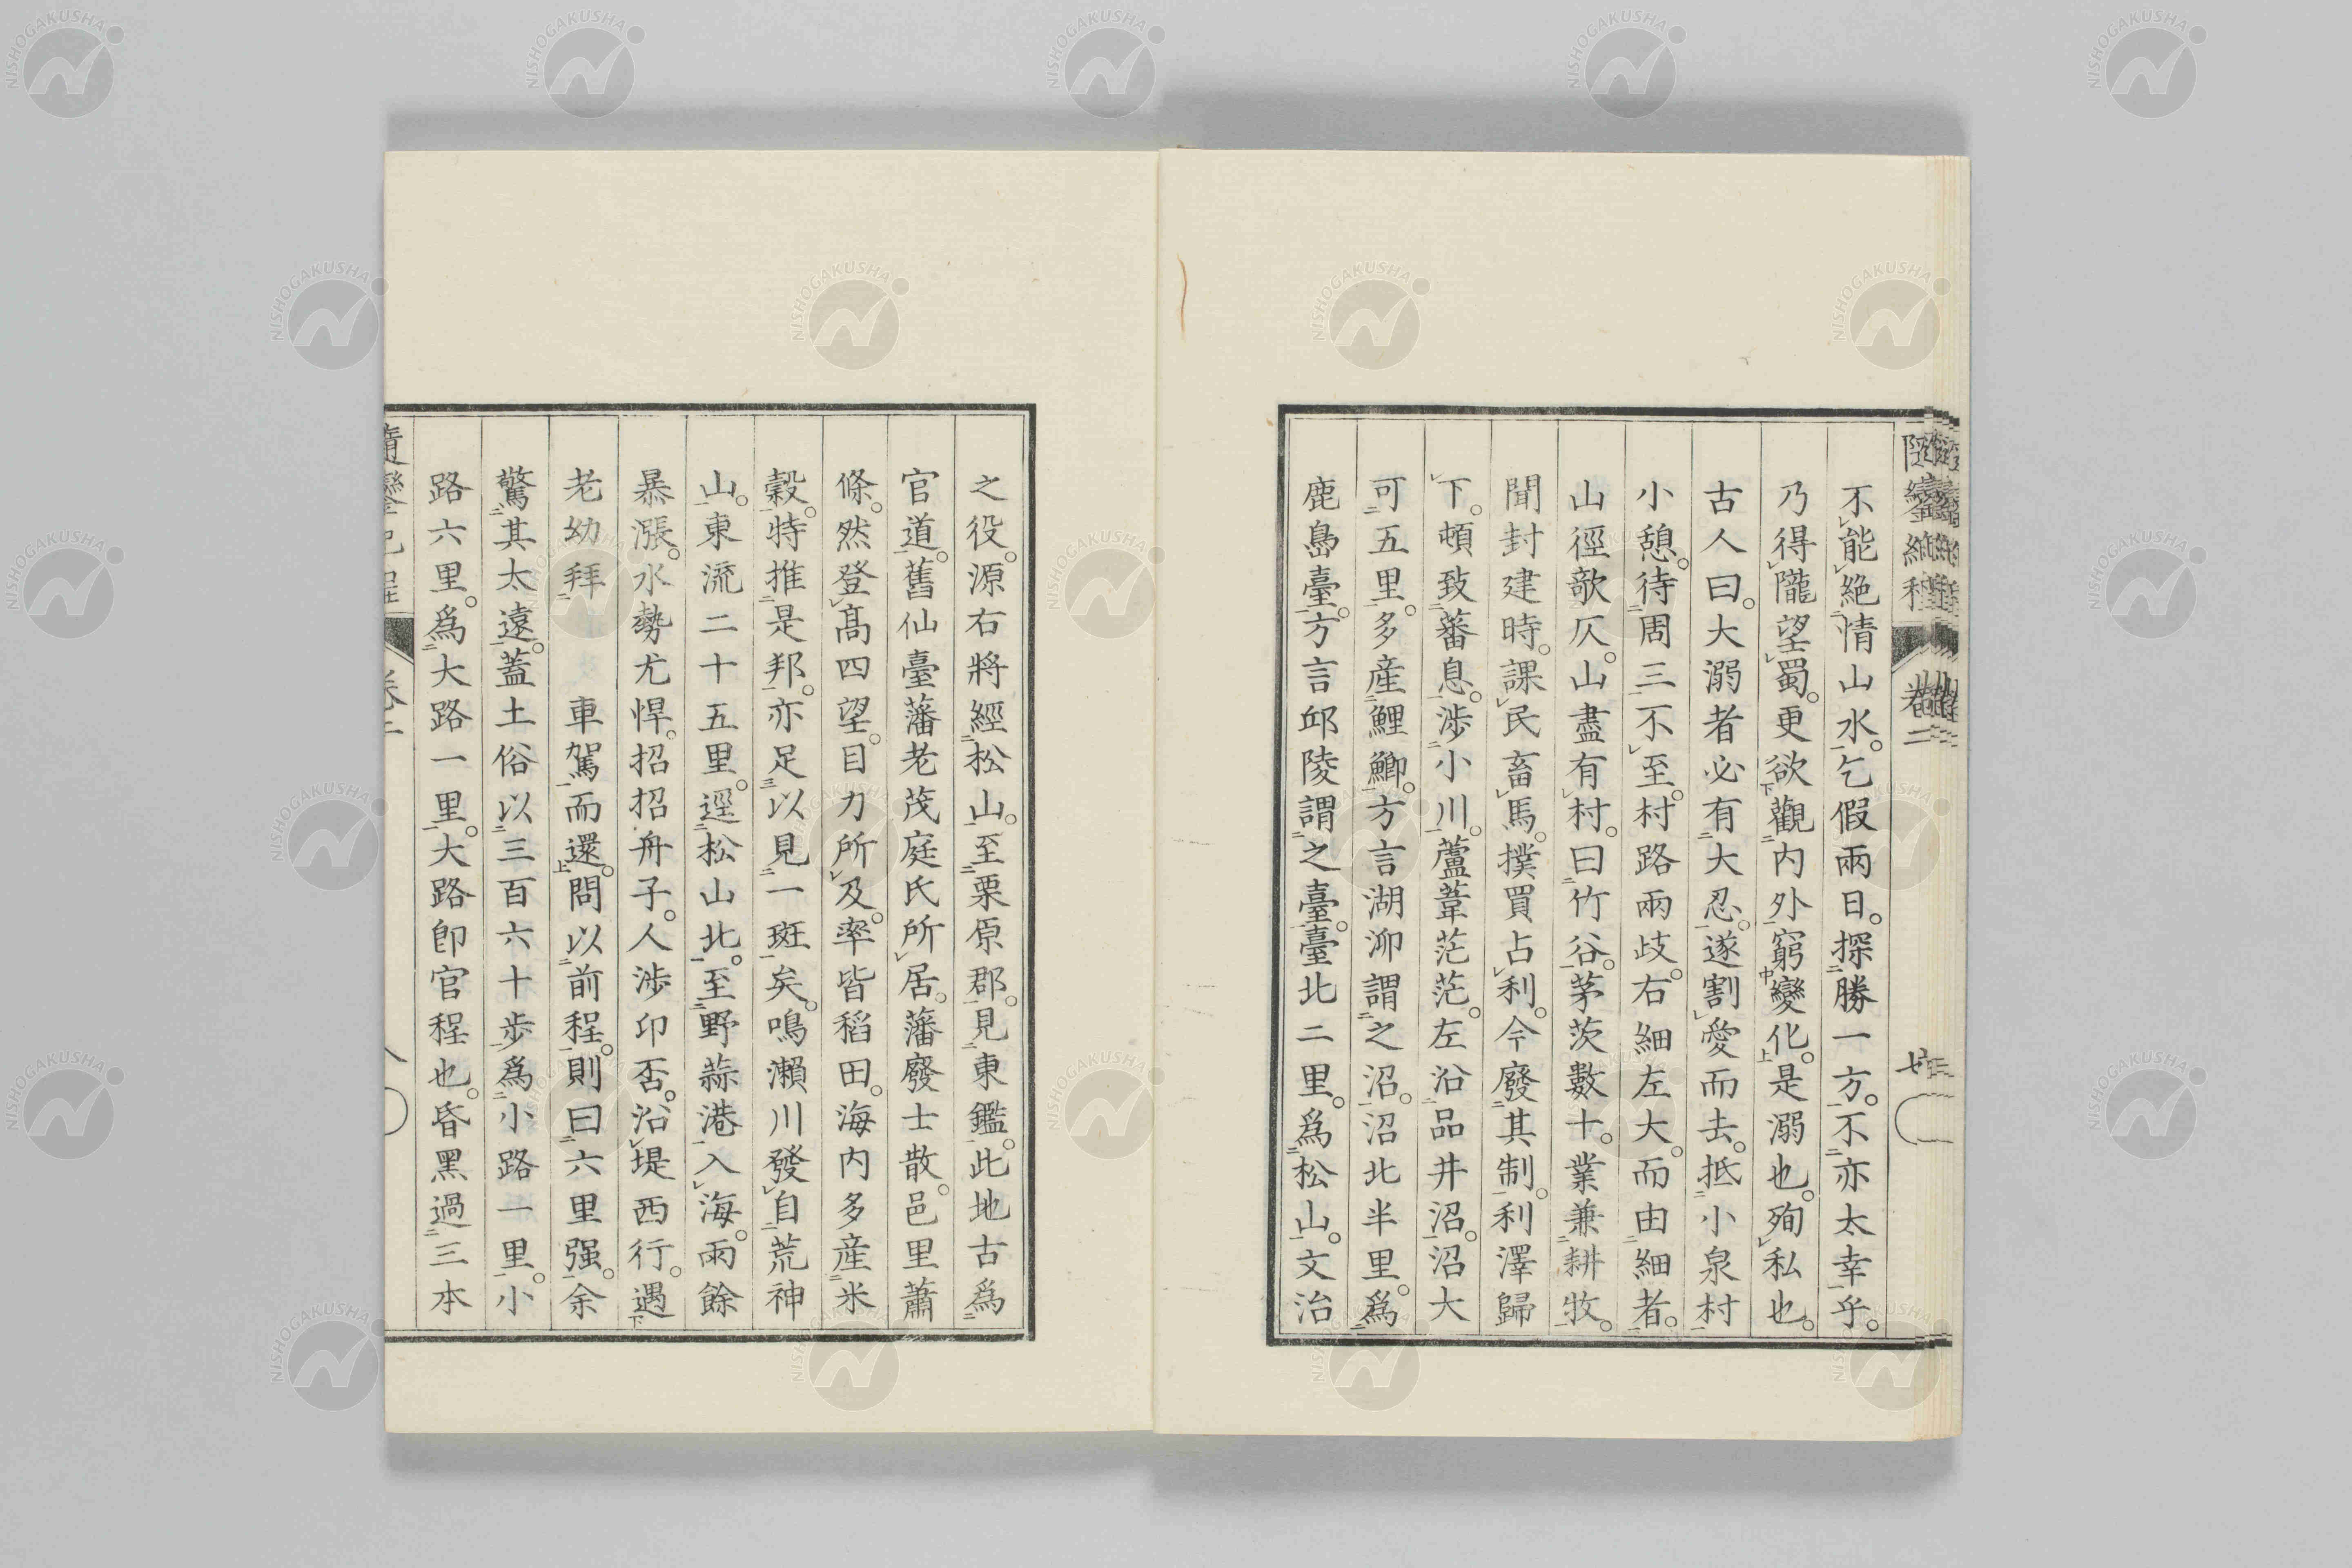 不能絶情山水。乞假兩日。探勝一方。不亦太幸乎。
乃得隴望蜀。更欲觀内外窮變化。是溺也。殉私也。
古人曰。大溺者必有大忍。遂割愛而去。抵小泉村
小憩。待周三不至。村路兩歧。右細左大。而由細者。
山徑欹仄。山盡有村。曰竹谷。茅茨數十。業兼耕牧。
聞封建時。課民畜馬。撲買占利。今廢其制。利澤歸
下。頓致蕃息。渉小川。蘆葦茫茫。左沿品井沼。沼大
可五里。多産鯉鯽。方言湖泖謂之沼。沼北半里。爲
鹿島臺。方言邱陵謂之臺。臺北二里。爲松山。文治
之役。源右將經松山。至栗原郡。見東鑑。此地古爲
官道。舊仙臺藩老茂庭氏所居。藩廢士散。邑里蕭
條。然登髙四望。目力所及。率皆稻田。海内多産米
穀。特推是邦。亦足以見一斑矣。鳴瀨川發自荒神
山。東流二十五里。逕松山北。至野蒜港入海。雨餘
暴漲。水勢尤悍。招招舟子。人渉卬否。沿堤西行。遇
老幼拜 車駕而還。問以前程。則曰六里强。余
驚其太遠。蓋土俗以三百六十歩爲小路一里。小
路六里。爲大路一里。大路卽官程也。昏黑過三本
卷二
NISHOGAKUSHA